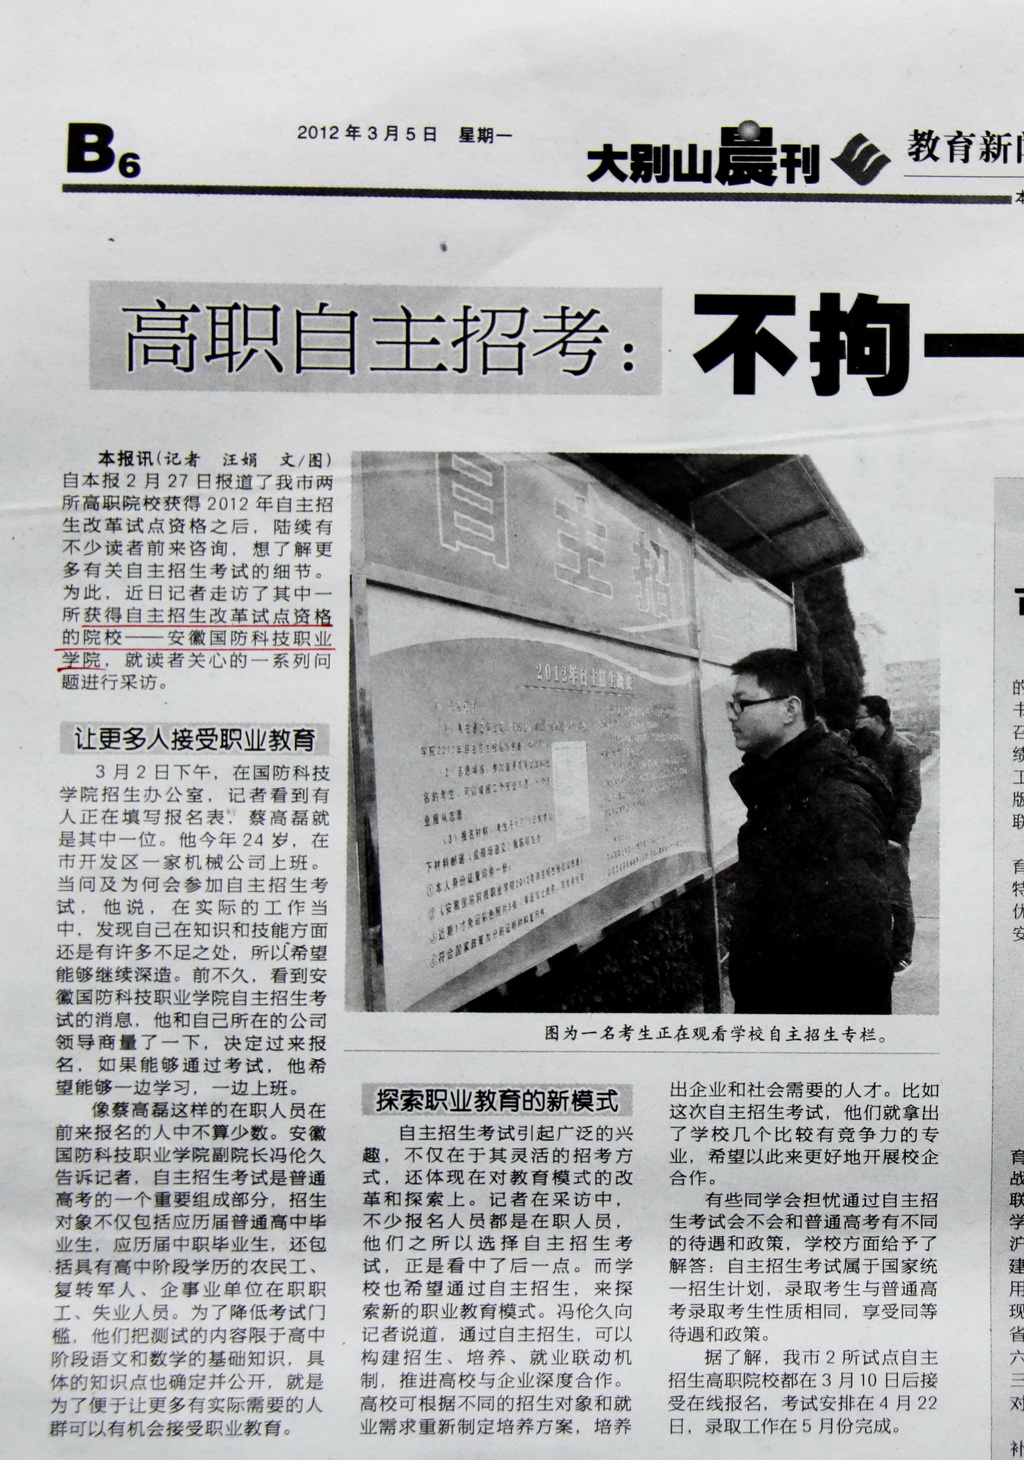 B6
2012年3月5日 星期一
大别山晨刊
教育新
高职自主招考：
不拘一
本报讯(记者 汪娟 文/图)
自本报2月27日报道了我市两
所高职院校获得2012年自主招
生改革试点资格之后，陆续有
不少读者前来咨询，想了解更
多有关自主招生考试的细节。
为此，近日记者走访了其中一
所获得自主招生改革试点资格
的院校——安徽国防科技职业
学院，就读者关心的一系列问
题进行采访。
让更多人接受职业教育
3月2日下午，在国防科技
学院招生办公室，记者看到有
人正在填写报名表，蔡高磊就
是其中一位。他今年24岁，在
市开发区一家机械公司上班。
当问及为何会参加自主招生考
试，他说，在实际的工作当
中，发现自己在知识和技能方面
还是有许多不足之处，所以希望
能够继续深造。前不久，看到安
徽国防科技职业学院自主招生考
试的消息，他和自己所在的公司
领导商量了一下，决定过来报
名，如果能够通过考试，他希
望能够一边学习，一边上班。
像蔡高磊这样的在职人员在
前来报名的人中不算少数。安徽
国防科技职业学院副院长冯伦久
告诉记者，自主招生考试是普通
高考的一个重要组成部分，招生
对象不仅包括应历届普通高中毕
业生，应历届中职毕业生，还包
括具有高中阶段学历的农民工、
复转军人、企事业单位在职职
工、失业人员。为了降低考试门
槛，他们把测试的内容限于高中
阶段语文和数学的基础知识，具
体的知识点也确定并公开，就是
为了便于让更多有实际需要的人
群可以有机会接受职业教育。
自主招
2012年自主招生
图为一名考生正在观看学校自主招生专栏。
探索职业教育的新模式
自主招生考试引起广泛的兴
趣，不仅在于其灵活的招考方
式，还体现在对教育模式的改
革和探索上。记者在采访中，
不少报名人员都是在职人员，
他们之所以选择自主招生考
试，正是看中了后一点。而学
校也希望通过自主招生，来探
索新的职业教育模式。冯伦久向
记者说道，通过自主招生，可以
构建招生、培养、就业联动机
制，推进高校与企业深度合作。
高校可根据不同的招生对象和就
业需求重新制定培养方案，培养
出企业和社会需要的人才。比如
这次自主招生考试，他们就拿出
了学校几个比较有竞争力的专
业，希望以此来更好地开展校企
合作。
有些同学会担忧通过自主招
生考试会不会和普通高考有不同
的待遇和政策，学校方面给予了
解答：自主招生考试属于国家统
一招生计划，录取考生与普通高
考录取考生性质相同，享受同等
待遇和政策。
据了解，我市2所试点自主
招生高职院校都在3月10日后接
受在线报名，考试安排在4月22
日，录取工作在5月份完成。